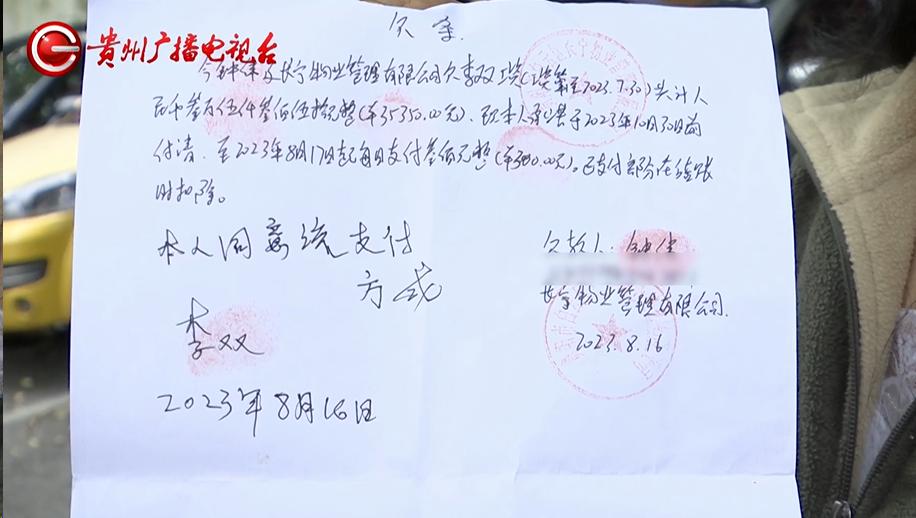 贵州广播电视台
欠条.
今钟伟及长宁物业管理有限公司欠李双 (至2023.7.30)共计人
民币叁万伍仟叁佰伍拾元整(¥35350.00元). 现本人承诺于2023年10月30日前
付清. 至2023年8月17日起每日支付叁佰元整(¥300.00元)。已支付部份在结账
时扣除。
本人同意 支付
方式
李双
2023年8月16日
欠款人.
长宁物业管理有限公司.
2023.8.16